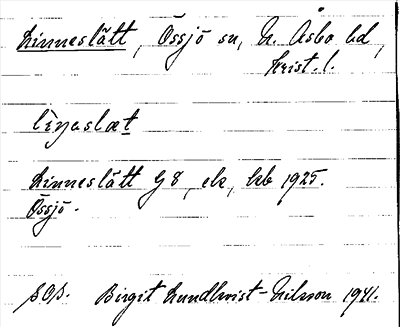 Linneslätt, Össjö sn, N. Åsbo hd,
Krist. l.
Linneslätt G 8, ek, kb 1925.
Össjö.
SOA. Birgit Lundkvist-Nilsson 1941.